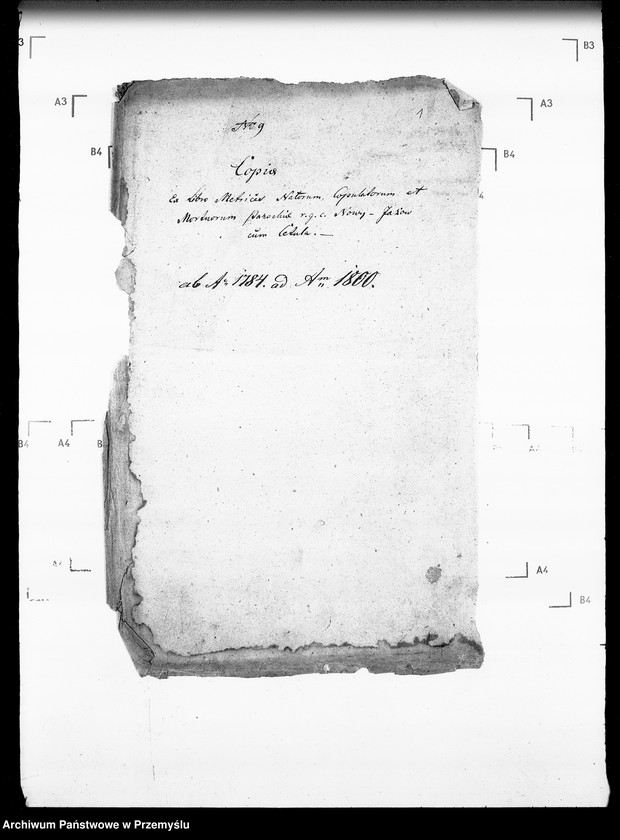 B3
B3
A3
A3
B4
B4
1
No 9
Copia
Ex Libro Metrices Natorum, Copulatorum et
Mortuorum parochiæ r. g. c. Nowy - Jazow
cum Cetula. —
ab Ao 1784. ad Am 1800.
4
B4
A4
B
A4
A4
B4
Archiwum Państwowe w Przemyślu